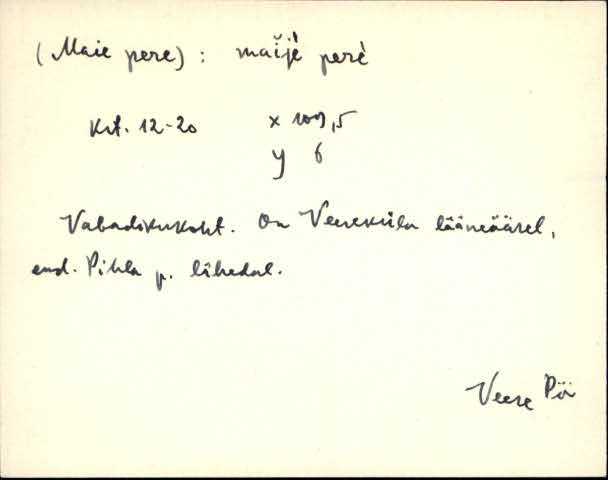 (Maie pere) : maĭjè perè
Krt. 12-20 x 109,5
y 6
Vabadikukoht. On Veereküla lääneäärel,
end. Pihla p. lähedal.
Veere Pöi